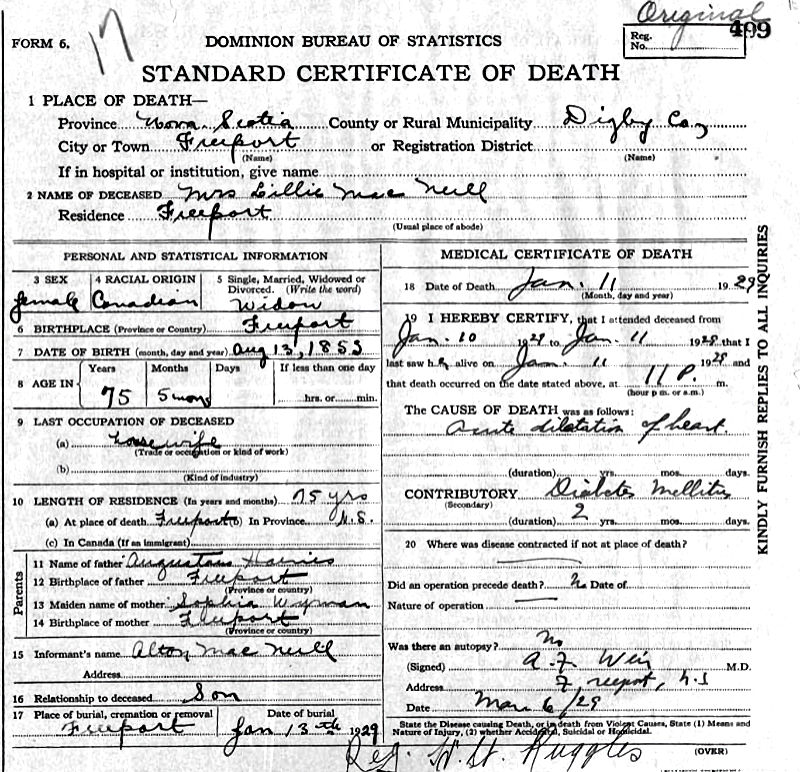 Original
499
FORM 6.
17
DOMINION BUREAU OF STATISTICS
Reg. No.
STANDARD CERTIFICATE OF DEATH
1 PLACE OF DEATH—
Province Nova Scotia County or Rural Municipality Digby Co,
City or Town Freeport or Registration District
(Name) (Name)
If in hospital or institution, give name
2 NAME OF DECEASED Mrs Lillie Mac Neill
Residence Freeport
(Usual place of abode)
PERSONAL AND STATISTICAL INFORMATION
3 SEX 4 RACIAL ORIGIN 5 Single, Married, Widowed or Divorced. (Write the word)
female Canadian Widow
6 BIRTHPLACE (Province or Country) Freeport
7 DATE OF BIRTH (month, day and year) Aug 13, 1853
8 AGE IN Years Months Days If less than one day
75 5 mon hrs. or min.
9 LAST OCCUPATION OF DECEASED
(a) housewife
(Trade or occupation or kind of work)
(b)
(Kind of industry)
10 LENGTH OF RESIDENCE (In years and months) 75 yrs
(a) At place of death Freeport (b) In Province N.S.
(c) In Canada (If an immigrant)
Parents
11 Name of father Augustus Haines
12 Birthplace of father Freeport
(Province or country)
13 Maiden name of mother Sophia Wyman
14 Birthplace of mother Freeport
(Province or country)
15 Informant's name Alton Mac Neill
Address
16 Relationship to deceased Son
17 Place of burial, cremation or removal Date of burial
Freeport Jan 13th 1929
MEDICAL CERTIFICATE OF DEATH
18 Date of Death Jan. 11 1929
(Month, day and year)
19 I HEREBY CERTIFY, that I attended deceased from
Jan. 10 1929 to Jan. 11 1929 that I
last saw her alive on Jan. 11 1929 and
that death occurred on the date stated above, at 11 P. m.
(hour p m. or a.m.)
The CAUSE OF DEATH was as follows:
Acute dilatation of heart.
(duration) yrs. mos. days.
CONTRIBUTORY Diabetes Mellitus
(Secondary)
(duration) 2 yrs. mos. days.
20 Where was disease contracted if not at place of death?
Did an operation precede death? No Date of
Nature of operation
Was there an autopsy? No
(Signed) A.F. Weir M.D.
Address Freeport, N.S
Date Mar 6/29
State the Disease causing Death, or in death from Violent Causes, State (1) Means and
Nature of Injury, (2) whether Accidental, Suicidal or Homicidal.
(OVER)
Reg. W. St. Ruggles
KINDLY FURNISH REPLIES TO ALL INQUIRIES